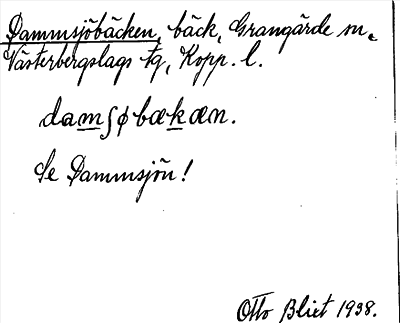 Dammsjöbäcken, bäck, Grangärde sn.
Västerbergslags tg, Kopp. l.
damʃøbækæn.
Se Dammsjön!
Otto Blixt 1938.